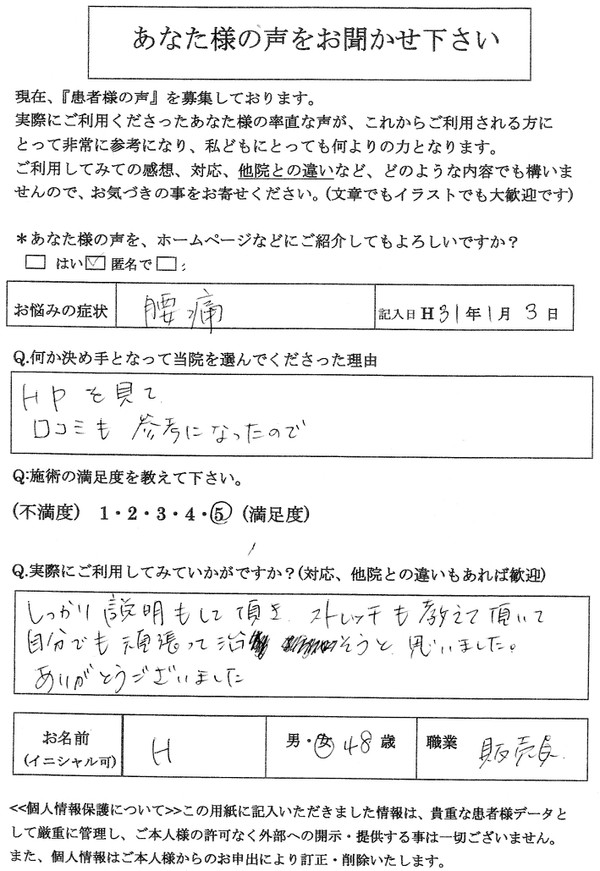 あなた様の声をお聞かせ下さい
現在、『患者様の声』を募集しております。
実際にご利用くださったあなた様の率直な声が、これからご利用される方に
とって非常に参考になり、私どもにとっても何よりの力となります。
ご利用してみての感想、対応、他院との違いなど、どのような内容でも構いま
せんので、お気づきの事をお寄せください。(文章でもイラストでも大歓迎です)
＊あなた様の声を、ホームページなどにご紹介してもよろしいですか？
□ はい☑匿名で□;
お悩みの症状 腰痛 記入日 H31年1月3日
Q.何か決め手となって当院を選んでくださった理由
HPを見て
口コミも 参考になったので
Q:施術の満足度を教えて下さい。
(不満度) 1・2・3・4・5 (満足度)
Q.実際にご利用してみていかがですか？(対応、他院との違いもあれば歓迎)
しっかり説明もして頂き ストレッチも教えて頂いて
自分でも頑張って治そうと思いました。
ありがとうございました
お名前 H 男・女 48歳 職業 販売員
(イニシャル可)
<<個人情報保護について>>この用紙に記入いただきました情報は、貴重な患者様データと
して厳重に管理し、ご本人様の許可なく外部への開示・提供する事は一切ございません。
また、個人情報はご本人様からのお申出により訂正・削除いたします。